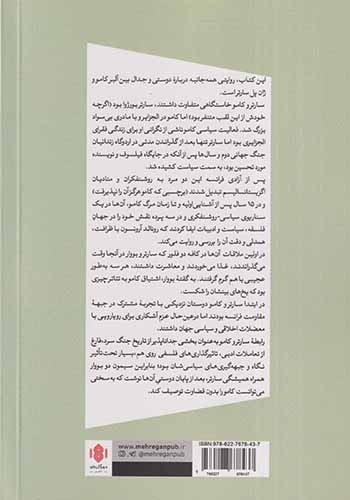 این کتاب، روایتی همه‌جانبه دربارهٔ دوستی و جدال بین آلبر کامو و
ژان پل سارتر است.
سارتر و کامو خاستگاهی متفاوت داشتند، سارتر بورژوا بود (اگرچه
خودش از این لقب متنفر بود) اما کامو در الجزایر و با مادری بی‌سواد
بزرگ شد. فعالیت سیاسی کامو ناشی از نگرانی او برای زندگی فقرای
الجزایری بود اما سارتر تنها بعد از گذراندن مدتی در اردوگاه زندانیان
جنگ جهانی دوم و سال‌ها پس از آنکه در جایگاه فیلسوف و نویسنده
مورد تحسین بود، به سمت سیاست کشیده شد.
پس از آزادی فرانسه این دو مرد به روشنفکران و منادیان
اگزیستانسیالیسم تبدیل شدند (برچسبی که کامو هرگز آن را نپذیرفت)
و در ۱۵ سال پس از آشنایی اولیه و تا زمان مرگ کامو، آن‌ها در یک
سناریوی سیاسی-روشنفکری و در سه پرده نقش خود را در جهان
فلسفه، سیاست و ادبیات ایفا کردند که رونالد آرونسون با ظرافت،
همدلی و دقت آن را بررسی و روایت می‌کند.
در اولین ملاقات آن‌ها در کافه دو فلور که سارتر و بووار در آنجا وقت
می‌گذراندند، غذا می‌خوردند و معاشرت داشتند، هر سه به‌طور
عجیبی با هم گرم گرفتند. به گفتهٔ بووار، اشتیاق کامو به تئاتر چیزی
بود که یخ‌های بینشان را شکست.
در ابتدا سارتر و کامو دوستان نزدیکی با تجربهٔ مشترک در جبههٔ
مقاومت فرانسه بودند اما درعین‌حال عزم آشکاری برای رویارویی با
معضلات اخلاقی و سیاسی جهان داشتند.
رابطهٔ سارتر و کامو به‌عنوان بخشی جداناپذیر از تاریخ جنگ سرد، فارغ
از تعاملات ادبی، تاثیرگذاری‌های فلسفی روی هم، بسیار تحت‌تأثیر
نگاه و جبهه‌گیری‌های سیاسی‌شان بود؛ بنابراین سیمون دو بووار
همراه همیشگی سارتر، بعد از پایان دوستی آن‌ها نوشت که به‌سختی
می‌توانست کامو را بدون قضاوت توصیف کند.
www.mehreganpub.ir
@mehreganpub
ISBN: 978-622-7678-43-7